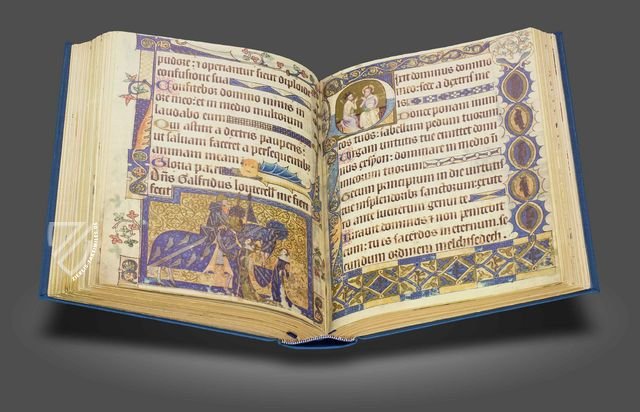 pudore: et operiantur sicut dyploide
confusione sua
Confitebor domino nimis in
ore meo: et in medio multorum
laudabo eum
Qui astitit a dextris pauperis:
ut salvam faceret a persequentib3
animam meam
Gloria patri
Dns Galfridus louterell me fieri
fecit
Dixit dominus domino
meo: sede a dextris me
Donec ponam inimi
cos tuos: scabellum pedum tuorum
Virgam virtutis tue emittet domi
nus ex syon: dominare in medio i
nimicorum tuorum
Tecum principium in die virtutis
tue in splendoribus sanctorum: ex ute
ro ante luciferum genui te
Iuravit dominus et non penitebit
eum: tu es sacerdos in eternum se
cundum ordinem melchisedech